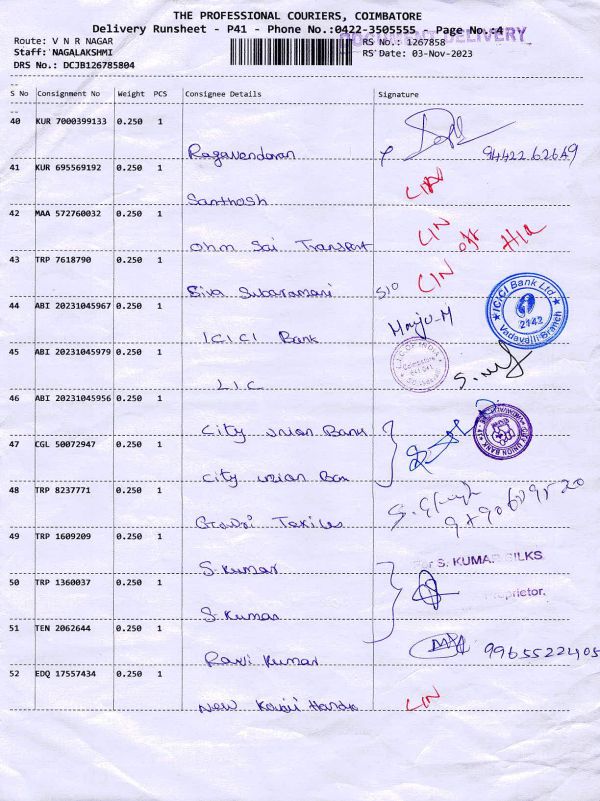 THE PROFESSIONAL COURIERS, COIMBATORE
Delivery Runsheet - P41 - Phone No.:0422-3505555 Page No.:4
DELIVERY
Route: V N R NAGAR RS No.: 1267858
Staff: NAGALAKSHMI RS Date: 03-Nov-2023
DRS No.: DCJB126785804
S No Consignment No Weight PCS Consignee Details Signature
40 KUR 7000399133 0.250 1
Ragavendaran 9442262649
41 KUR 695569192 0.250 1
Santhosh
42 MAA 572760032 0.250 1 LIN
Ohm Sai Transport
43 TRP 7618790 0.250 1 LIN
Siva Subaramani S/O
44 ABI 20231045967 0.250 1 Manju-M
ICICI Bank
ICICI Bank Ltd
2142
Vadavalli Branch
45 ABI 20231045979 0.250 1
LIC
L I C OF INDIA
Coimbatore
641 041
46 ABI 20231045956 0.250 1
City Union Bank
CITY UNION BANK
47 CGL 50072947 0.250 1
City union Ban
48 TRP 8237771 0.250 1
49 TRP 1609209 0.250 1
S. Kumar
For S. KUMAR SILKS
50 TRP 1360037 0.250 1
Proprietor.
S. Kumar
51 TEN 2062644 0.250 1
Ravi Kumar 9965522405
52 EDQ 17557434 0.250 1
New LIN